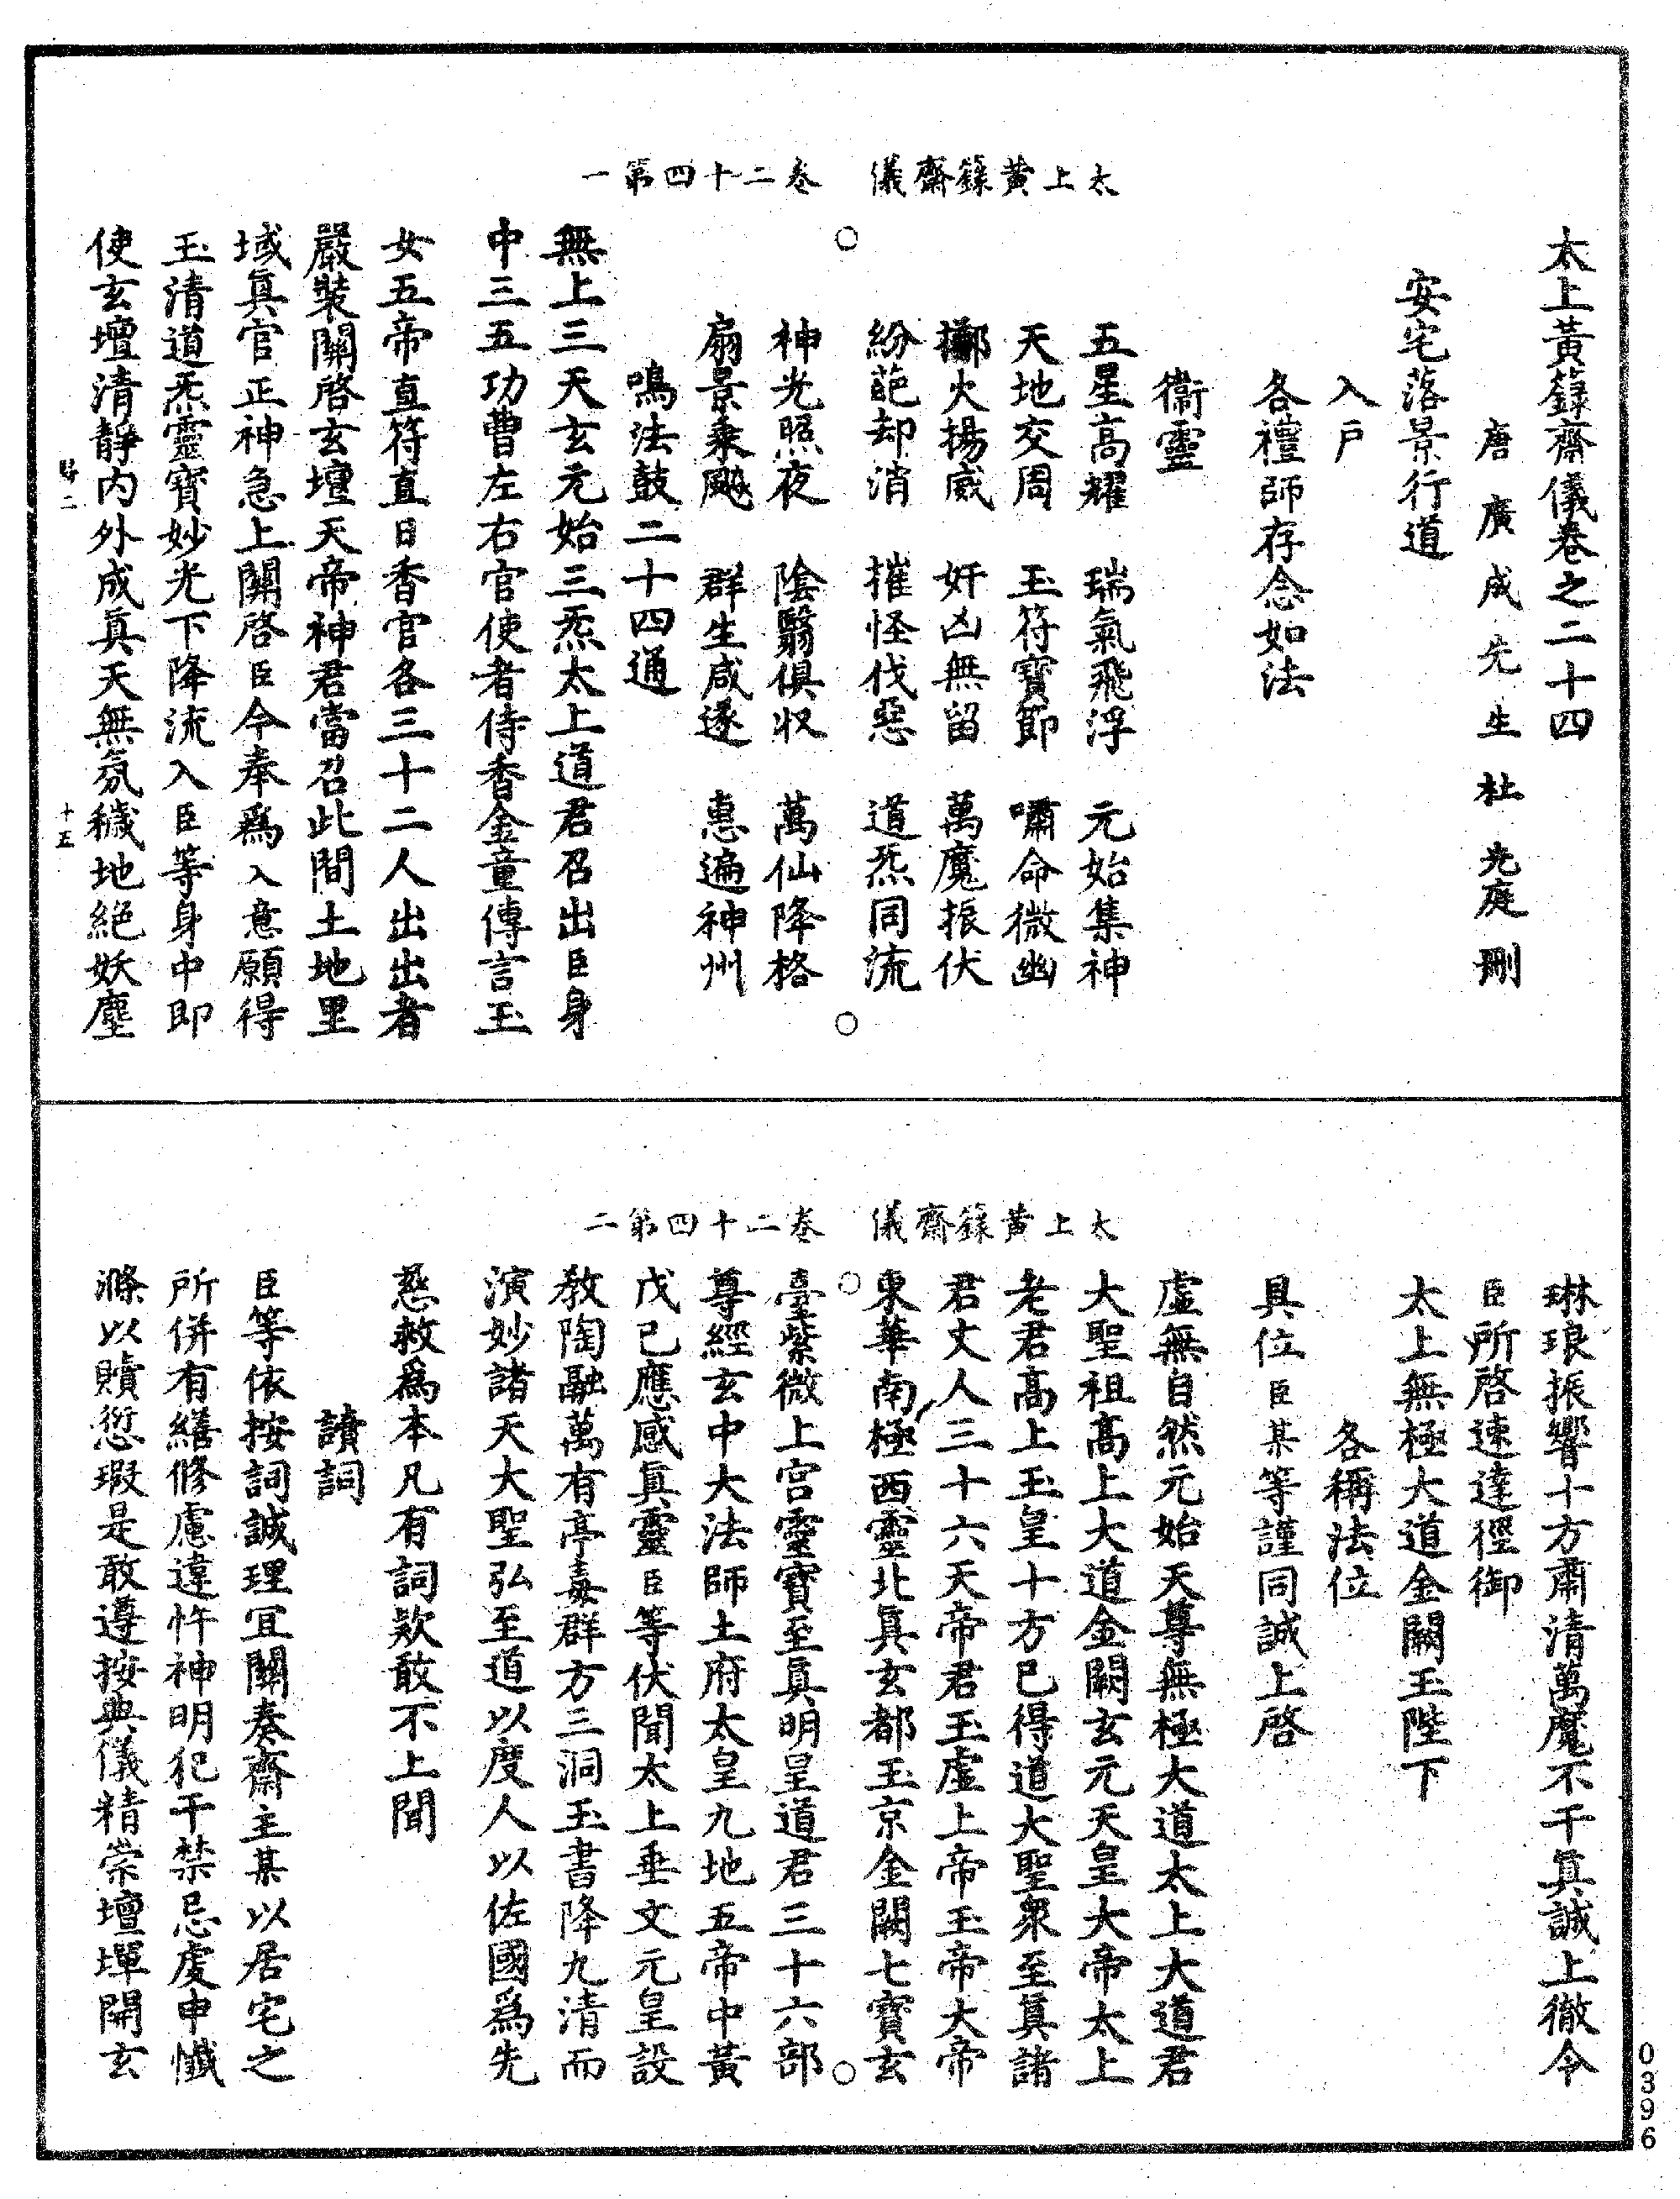 太上黃籙齋儀　卷二十四第一
太上黃籙齋儀卷之二十四
唐廣成先生杜光庭刪
安宅落景行道
入戶
各禮師存念如法
衞靈
五星高耀　瑞氣飛浮　元始集神
天地交周　玉符寶節　嘯命微幽
擲火揚威　奸凶無留　萬魔振伏
紛葩却消　摧怪伐惡　道炁同流
神光照夜　陰翳俱收　萬仙降格
扇景乘飈　群生咸遂　惠遍神州
鳴法鼓二十四通
無上三天玄元始三炁太上道君召出臣身
中三五功曹左右官使者侍香金童傳言玉
女五帝直符直日香官各三十二人出出者
嚴裝關啓玄壇天帝神君當召此間土地里
域眞官正神急上關啓臣今奉爲入意願得
玉清道炁靈寶妙光下降流入臣等身中即
使玄壇清靜內外成眞天無氛穢地絕妖塵
二
十五
太上黃籙齋儀　卷二十四第二
琳琅振響十方肅清萬魔不干眞誠上徹令
臣所啓速達徑御
太上無極大道金闕玉陛下
各稱法位
具位臣某等謹同誠上啓
虛無自然元始天尊無極大道太上大道君
大聖祖高上大道金闕玄元天皇大帝太上
老君高上玉皇十方已得道大聖衆至眞諸
君丈人三十六天帝君玉虛上帝玉帝大帝
東華南極西靈北眞玄都玉京金闕七寶玄
臺紫微上宮靈寶至眞明皇道君三十六部
尊經玄中大法師土府太皇九地五帝中黃
戊己應感眞靈臣等伏聞太上垂文元皇設
敎陶融萬有亭毒群方三洞玉書降九清而
演妙諸天大聖弘至道以度人以佐國爲先
慈救爲本凡有詞欵敢不上聞
讀詞
臣等依按詞誠理宜關奏齋主某以居宅之
所併有繕修慮違忤神明犯干禁忌虔申懺
滌以贖愆瑕是敢遵按典儀精崇壇墠開玄
0396